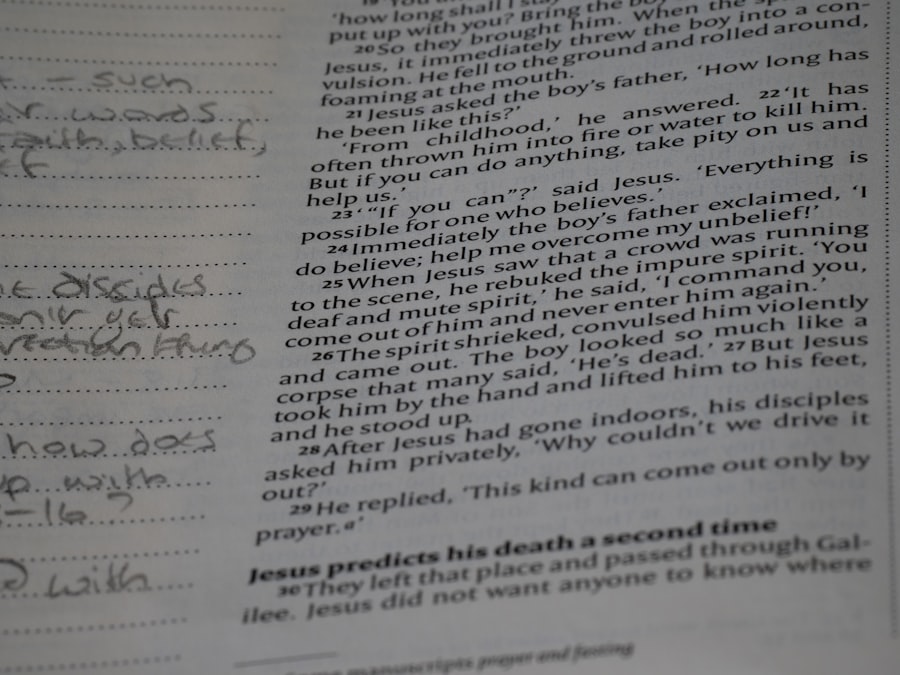 - such
words
belief,
disciples
thing
how does
up with
-16?
with
19 'You
'how long shall I
put up with you? Bring the boy
20 So they brought him. When the
Jesus, it immediately threw the boy into a con-
vulsion. He fell to the ground and rolled around,
foaming at the mouth.
21 Jesus asked the boy's father, 'How long has
he been like this?'
'From childhood,' he answered. 22 'It has
often thrown him into fire or water to kill him.
But if you can do anything, take pity on us and
help us.'
23 '"If you can"?' said Jesus. 'Everything is
possible for one who believes.'
24 Immediately the boy's father exclaimed, 'I
do believe; help me overcome my unbelief!'
25 When Jesus saw that a crowd was running
to the scene, he rebuked the impure spirit. 'You
deaf and mute spirit,' he said, 'I command you,
come out of him and never enter him again.'
26 The spirit shrieked, convulsed him violently
and came out. The boy looked so much like a
corpse that many said, 'He's dead.' 27 But Jesus
took him by the hand and lifted him to his feet,
and he stood up.
28 After Jesus had gone indoors, his disciples
asked him privately, 'Why couldn't we drive it
out?'
29 He replied, 'This kind can come out only by
prayer.a'
Jesus predicts his death a second time
30 They left that place and passed through Gal-
ilee. Jesus did not want anyone to know where
manuscripts prayer and fasting